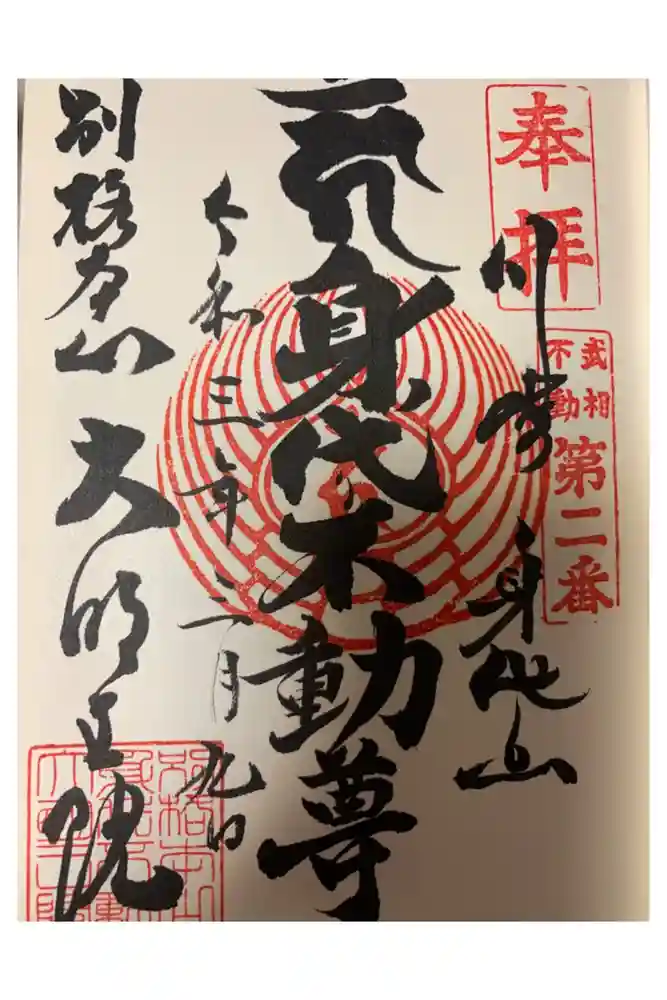 奉拝
武相
不動
第二番
川崎 身代山
身代不動尊
令和三年二月九日
別格本山 大明王院